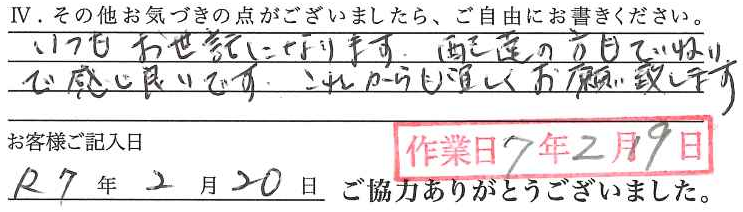 Ⅳ．その他お気づきの点がございましたら、ご自由にお書きください。
いつもお世話になります。配達の方もていねい
で感じ良いです。これからも宜しくお願い致します
お客様ご記入日
作業日7年2月19日
R7年2月20日 ご協力ありがとうございました。